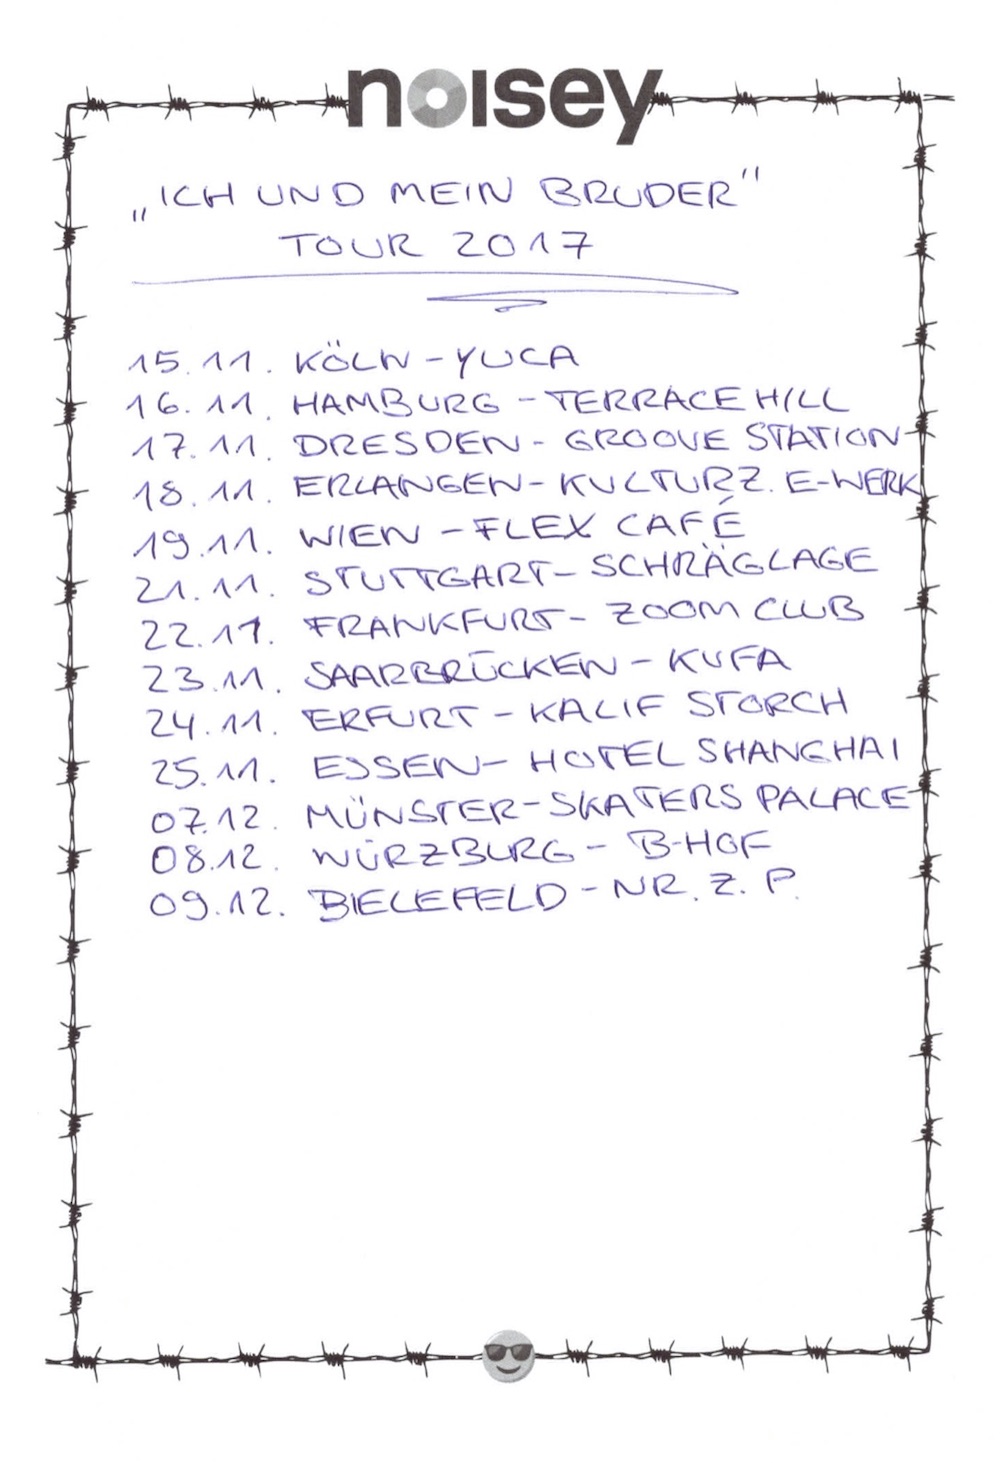 noisey
„ICH UND MEIN BRUDER"
TOUR 2017
15.11. KÖLN - YUCA
16.11. HAMBURG - TERRACE HILL
17.11. DRESDEN - GROOVE STATION
18.11. ERLANGEN - KULTURZ. E-WERK
19.11. WIEN - FLEX CAFÉ
21.11. STUTTGART - SCHRÄGLAGE
22.11. FRANKFURT - ZOOM CLUB
23.11. SAARBRÜCKEN - KUFA
24.11. ERFURT - KALIF STORCH
25.11. ESSEN - HOTEL SHANGHAI
07.12. MÜNSTER - SKATERS PALACE
08.12. WÜRZBURG - B-HOF
09.12. BIELEFELD - NR. Z. P.